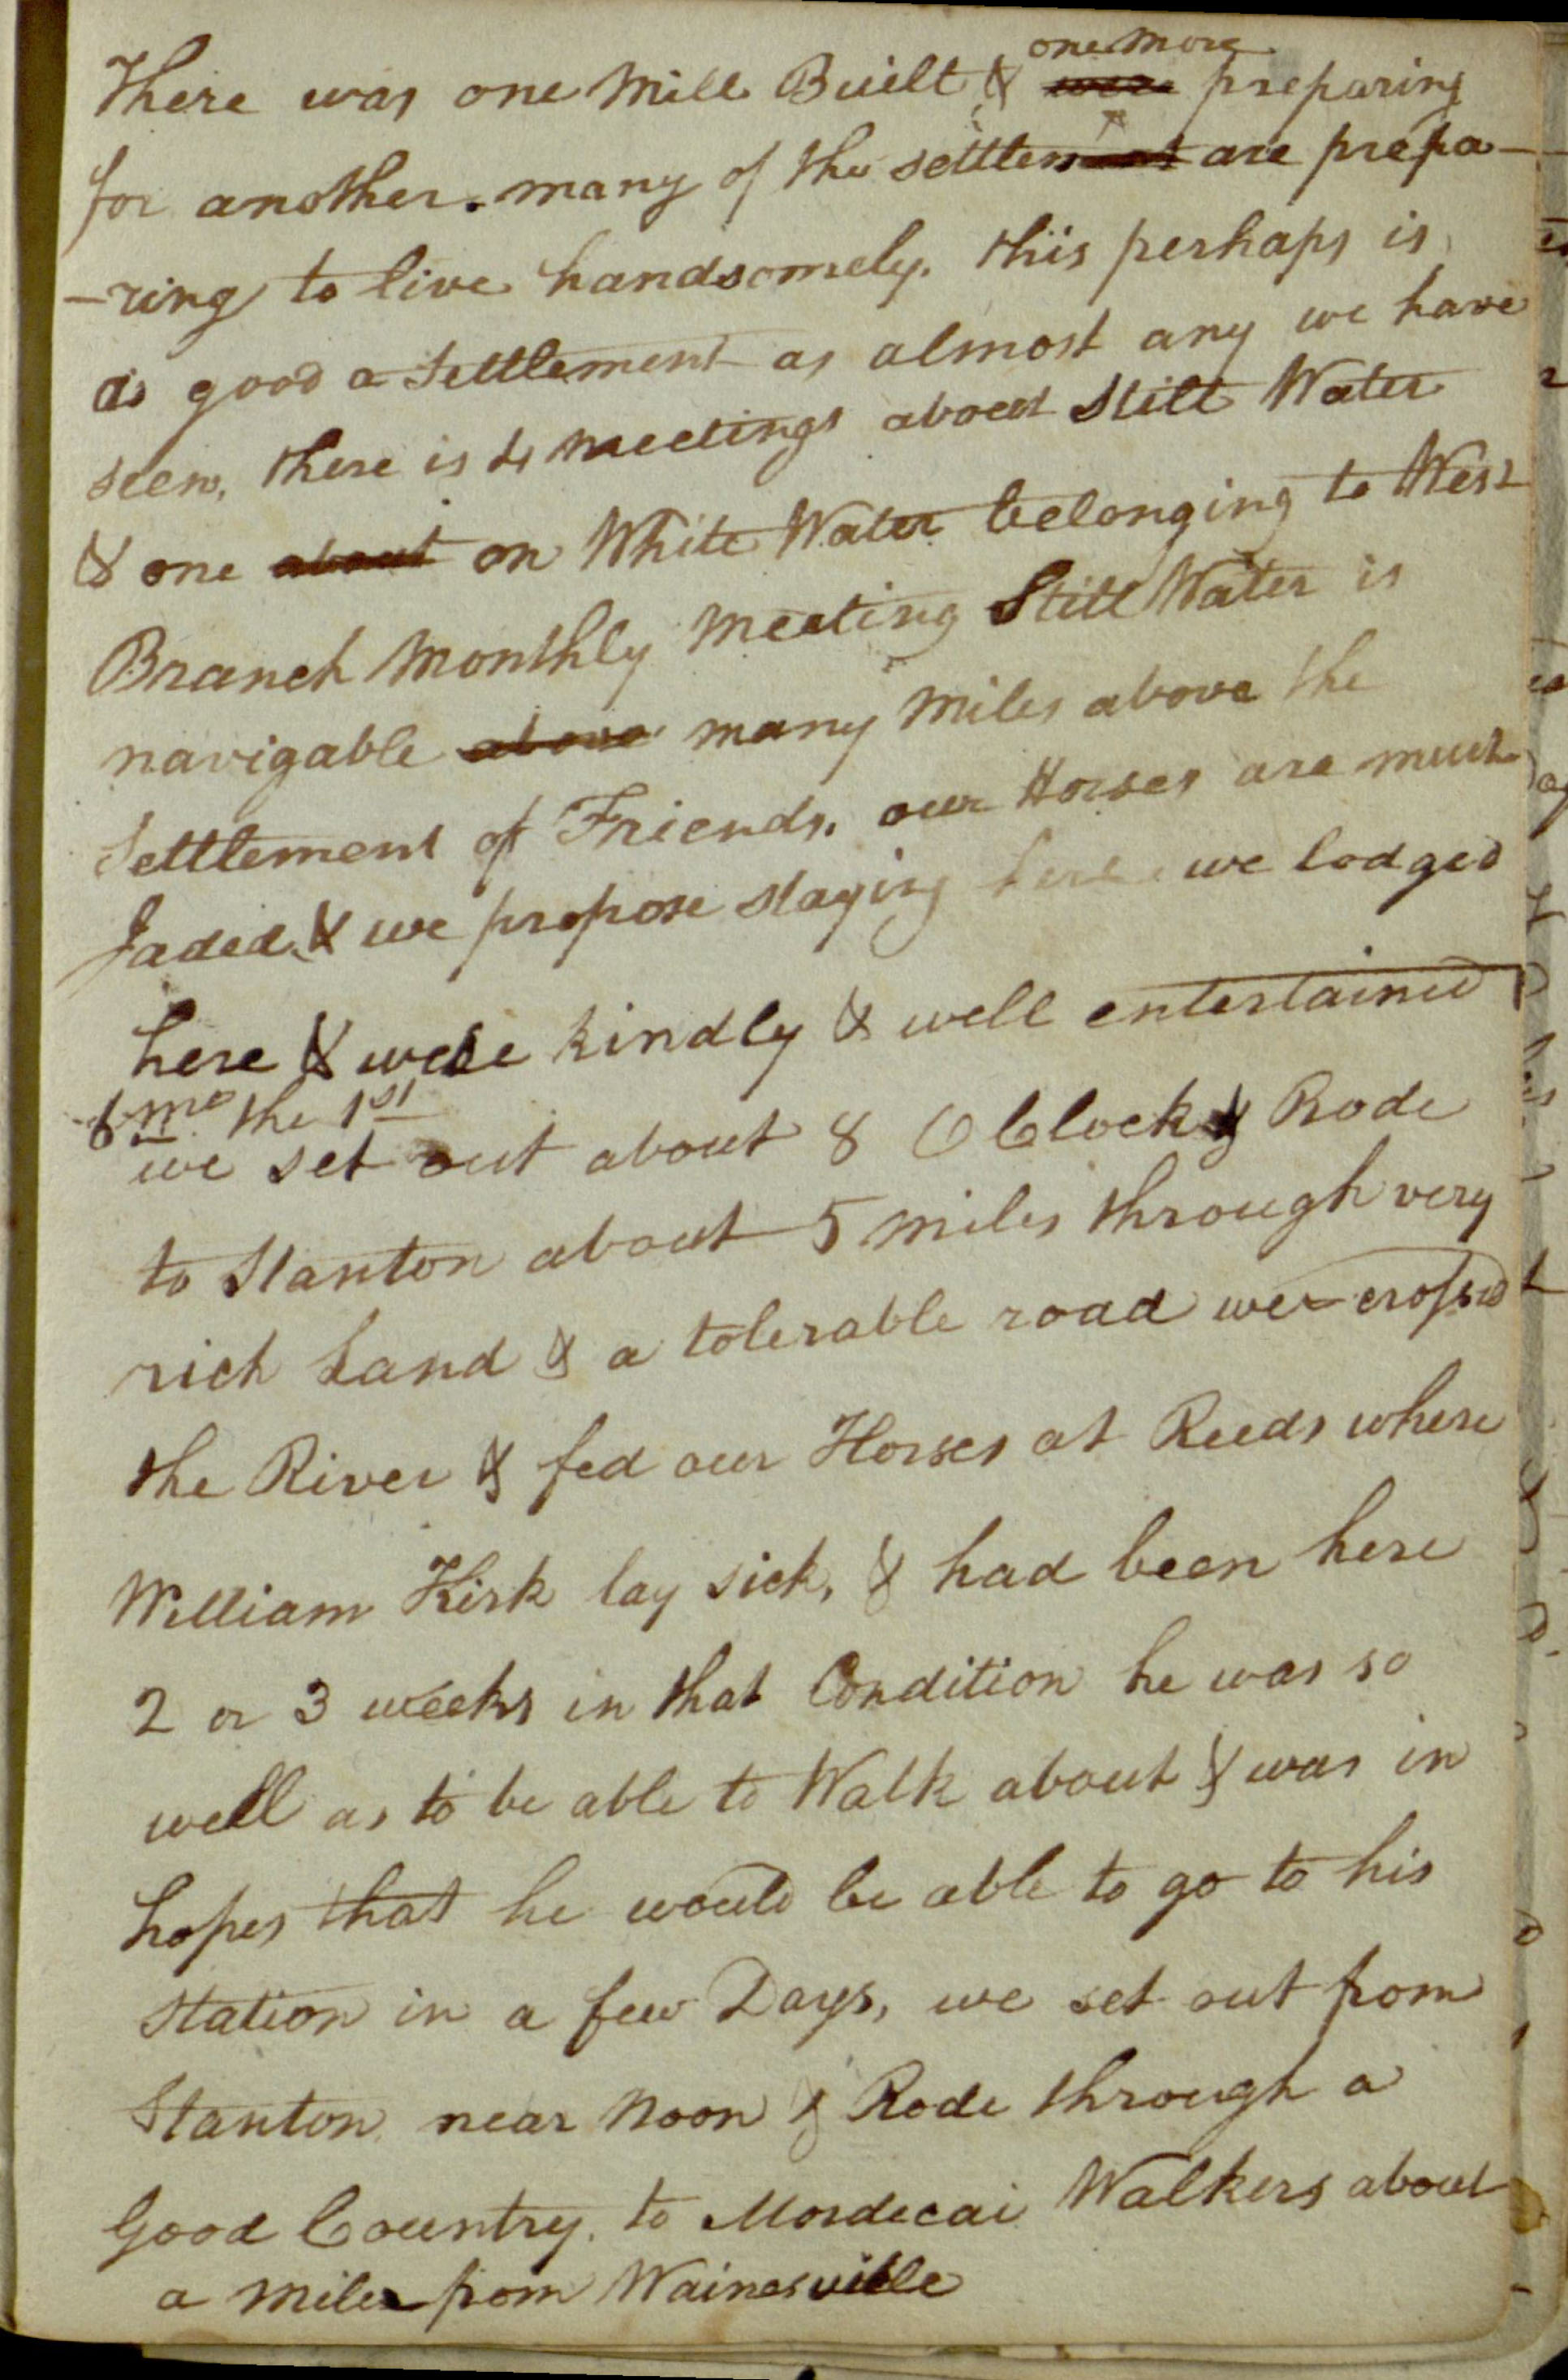 one more
There was one Mill Built & were preparing
for another. many of the settlement are prepa-
-ring to live handsomely. this perhaps is
as good a Settlement as almost any we have
seen, there is 4 meetings about Still Water
& one about on White Water belonging to West
Branch Monthly Meeting Still Water is
navigable above many Miles above the
Settlement of Friends. our Horses are much
Jaded & we propose staying here we lodged
here & were kindly & well entertained
6 mo the 1st
we set out about 8 O Clock & Rode
to Stanton about 5 miles through very
rich Land & a tolerable road we crossed
the River & fed our Horses at Reeds where
William Kirk lay sick, & had been here
2 or 3 weeks in that Condition he was so
well as to be able to Walk about & was in
hopes that he would be able to go to his
Station in a few Days, we set out from
Stanton near Noon & Rode through a
Good Country. to Mordecai Walkers about
a mile from Wainesville